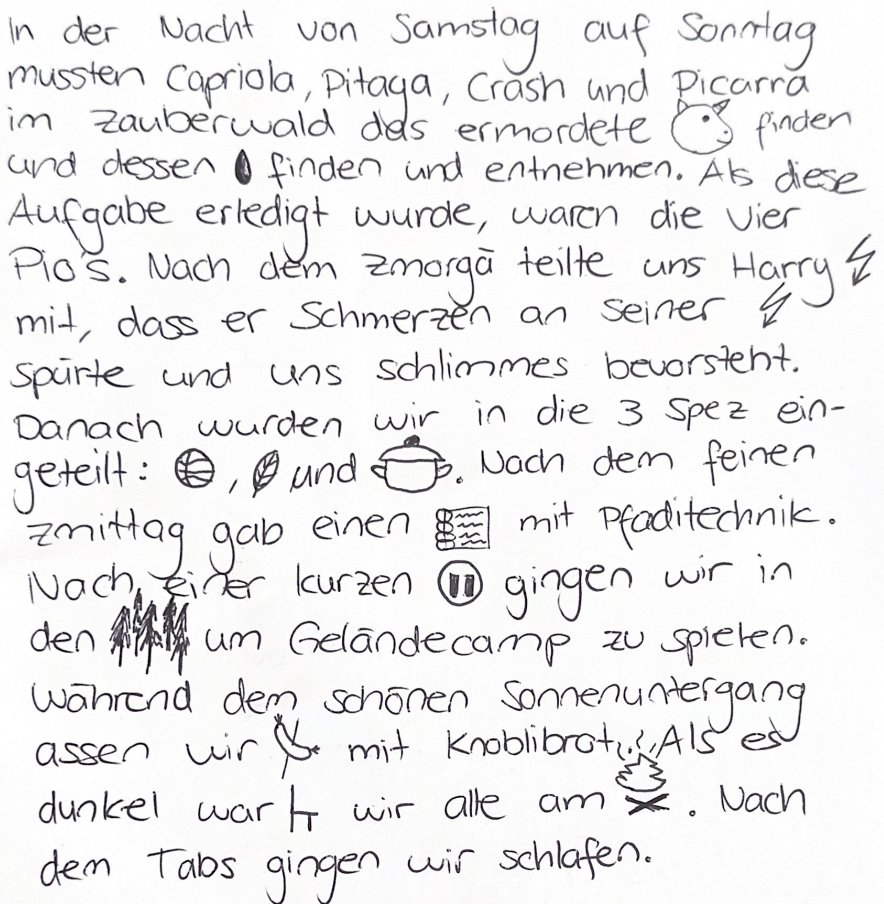 In der Nacht von Samstag auf Sonntag
mussten Capriola, Pitaga, Crash und Picarra
im Zauberwald das ermordete finden
und dessen finden und entnehmen. Als diese
Aufgabe erledigt wurde, waren die Vier
Pio's. Nach dem zmorgä teilte uns Harry
mit, dass er Schmerzen an seiner
spürte und uns schlimmes bevorsteht.
Danach wurden wir in die 3 Spez ein-
geteilt: , und . Nach dem feinen
zmittag gab einen mit Pfaditechnik.
Nach einer kurzen gingen wir in
den um Geländecamp zu spielen.
Während dem schönen Sonnenuntergang
assen wir mit Knoblibrot. Als es
dunkel war wir alle am . Nach
dem Tabs gingen wir schlafen.